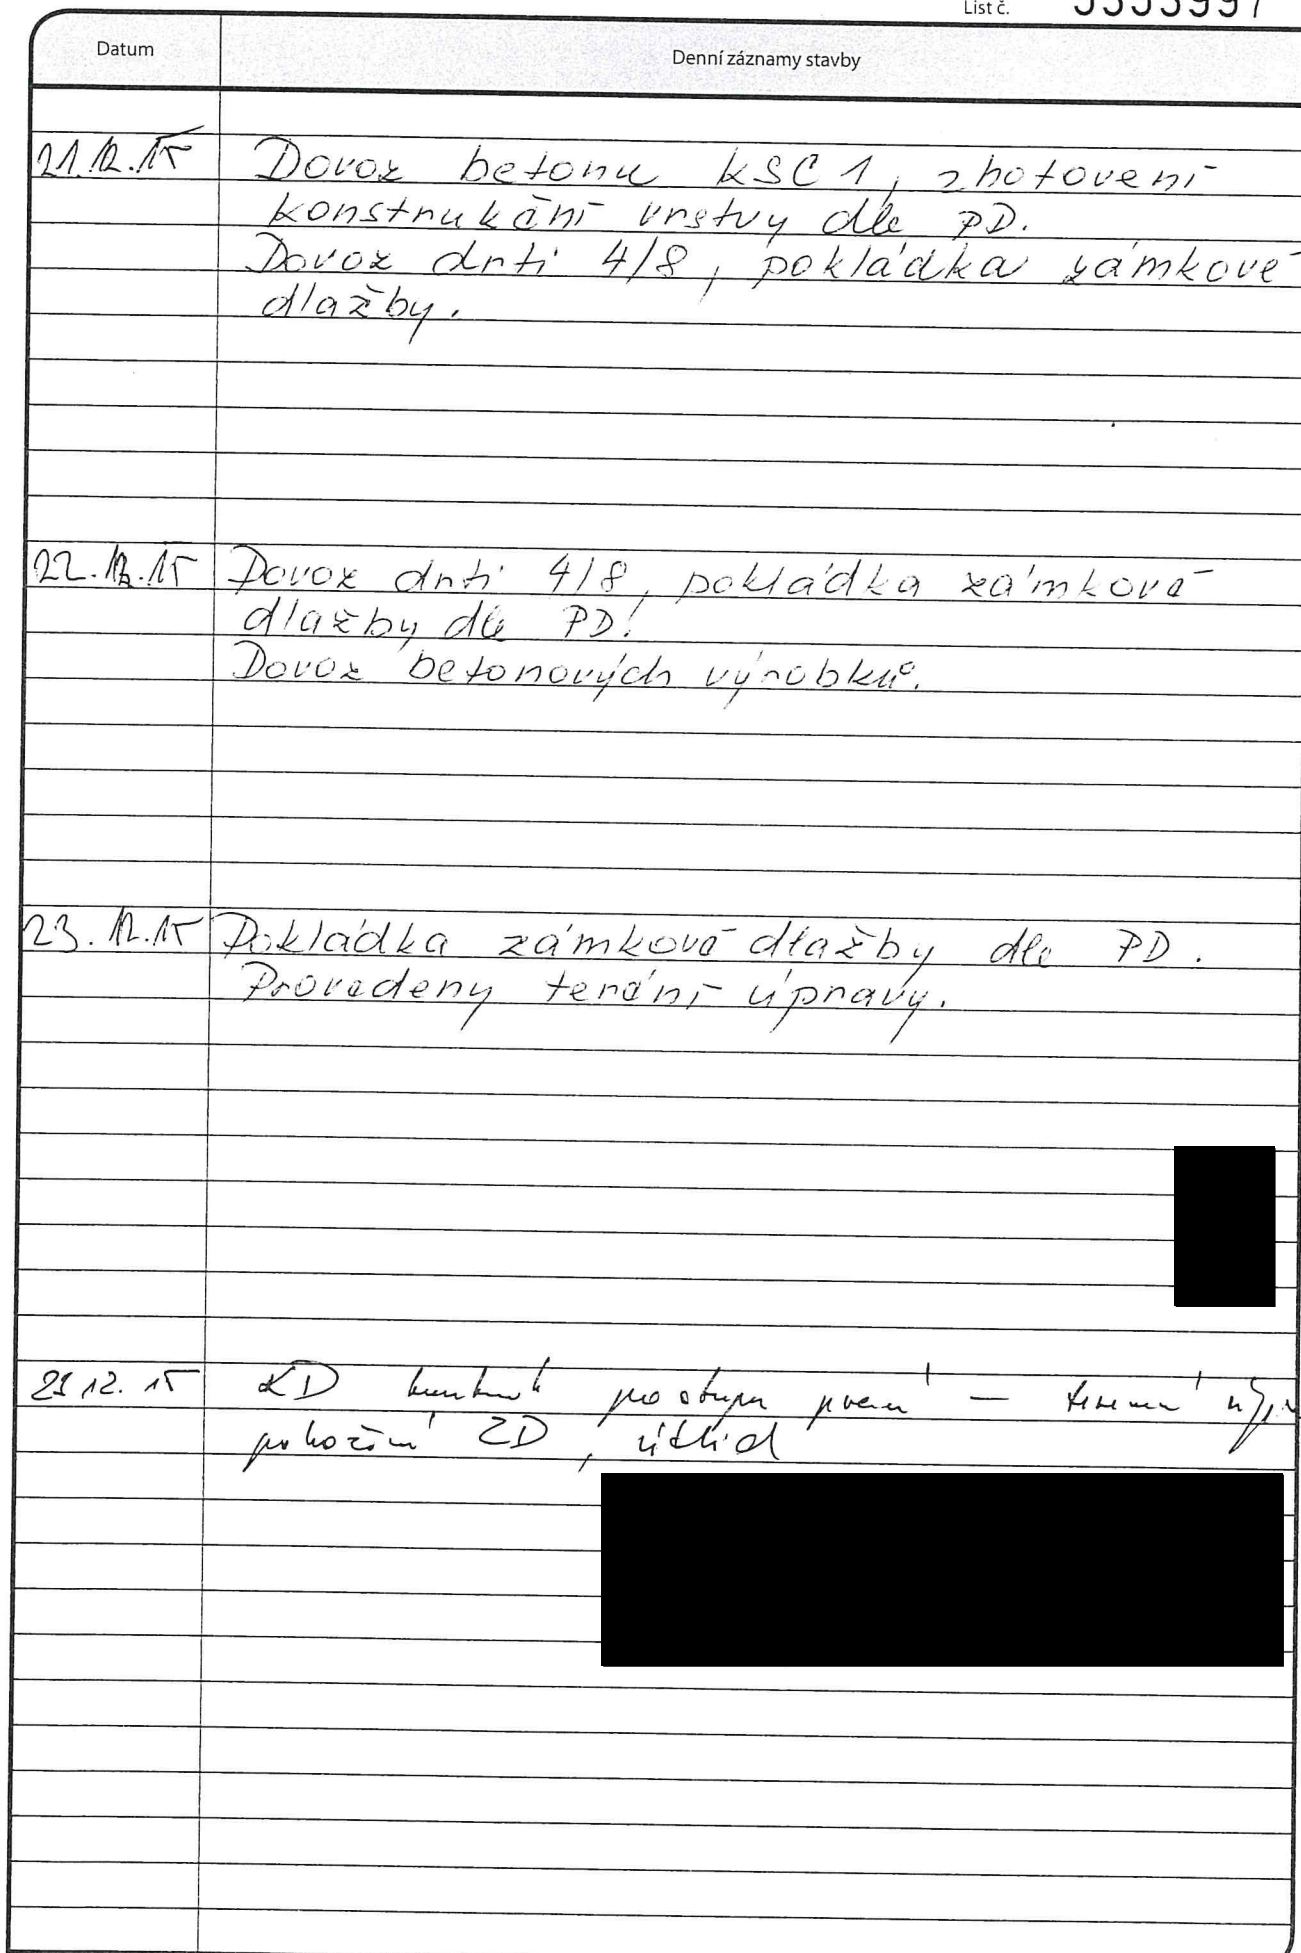 List č.
Datum
Denní záznamy stavby
21.12.15 Dovoz betonu KSC 1, zhotovení
konstrukční vrstvy dle PD.
Dovoz drti 4/8, pokládka zámkové
dlažby.
22.12.15 Dovoz drti 4/8, pokládka zámkové
dlažby dle PD.
Dovoz betonových výrobků.
23.12.15 Pokládka zámkové dlažby dle PD.
Provedeny teréní úpravy.
12. 15 KD postupu prací —
ZD, úklid